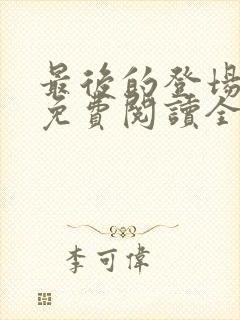 最後的登場
免費閱讀全
李可偉